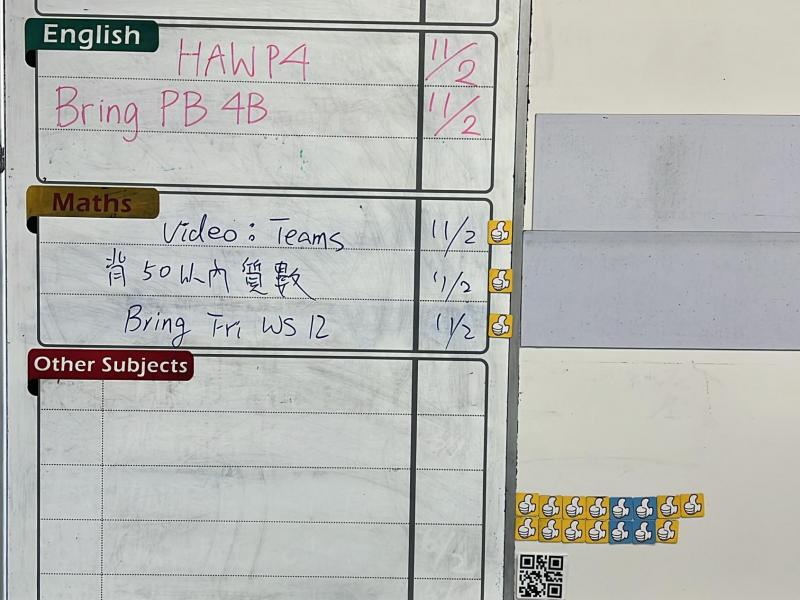 English
HAW P4 11/2
Bring PB 4B 11/2
Maths
Video: Teams 11/2
背 50 以內 質數 11/2
Bring Fri WS 12 11/2
Other Subjects